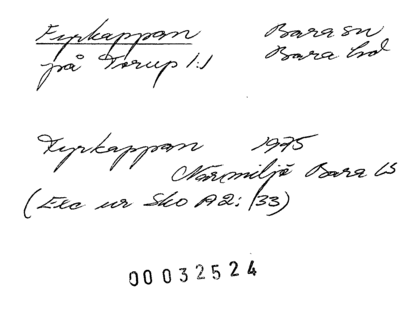 Fyrkappan Bara sn
på Torup 1:1 Bara hd
Fyrkappan 1975
Närmiljö Bara LS
(Exc ur Sko A2: 133)
00032524